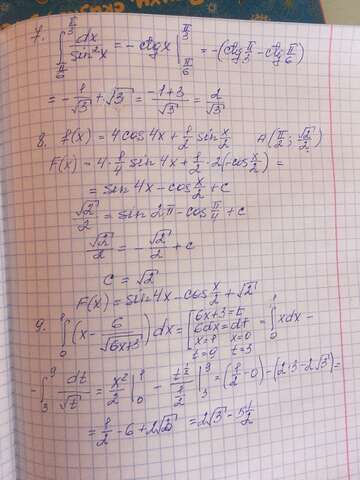 7. ∫_{π/6}^{π/3} dx/sin²x = -ctgx |_{π/6}^{π/3} = -(ctg π/3 - ctg π/6)
= -1/√3 + √3 = (-1+3)/√3 = 2/√3
8. f(x) = 4cos4x + 1/2 sin x/2 A(π/2; √2/2)
F(x) = 4·1/4 sin4x + 1/2·2(-cos x/2) =
= sin4x - cos x/2 + c
√2/2 = sin2π - cos π/4 + c
√2/2 = -√2/2 + c
c = √2
F(x) = sin4x - cos x/2 + √2
9. ∫_0^1 (x - 6/√(6x+3)) dx = [6x+3=t 6dx=dt x=1 x=0 t=9 t=3] = ∫_0^1 xdx -
- ∫_3^9 dt/√t = x²/2 |_0^1 - t^{1/2}/(1/2) |_3^9 = (1/2 - 0) - (2·3 - 2√3) =
= 1/2 - 6 + 2√3 = 2√3 - 5 1/2